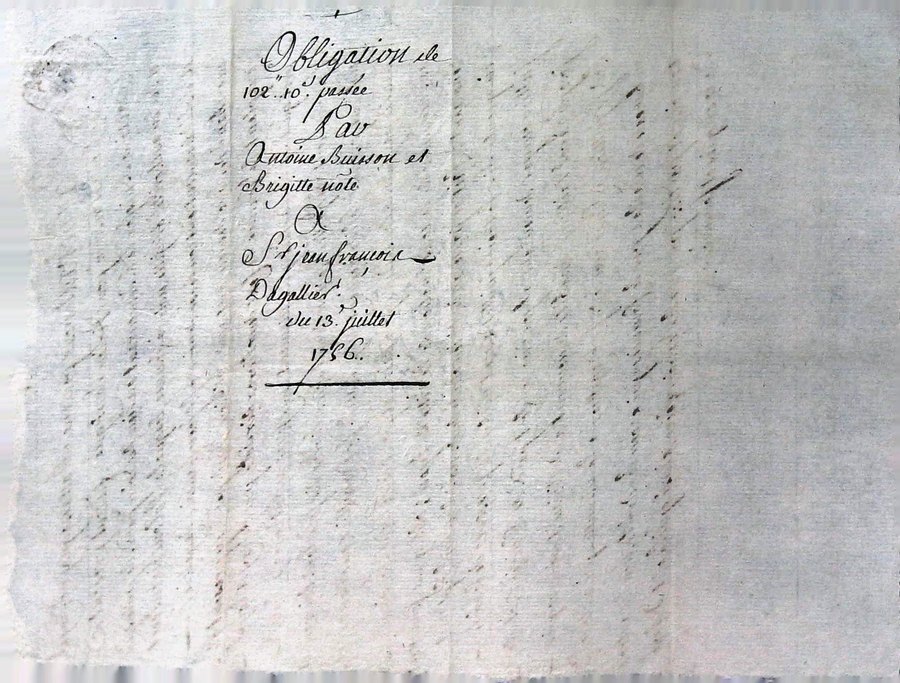 Obligation de
102" 10s. passée
Par
Antoine Buisson et
Brigitte note
A
Sr jean françois
Dagallier.
du 13e juillet
1756.